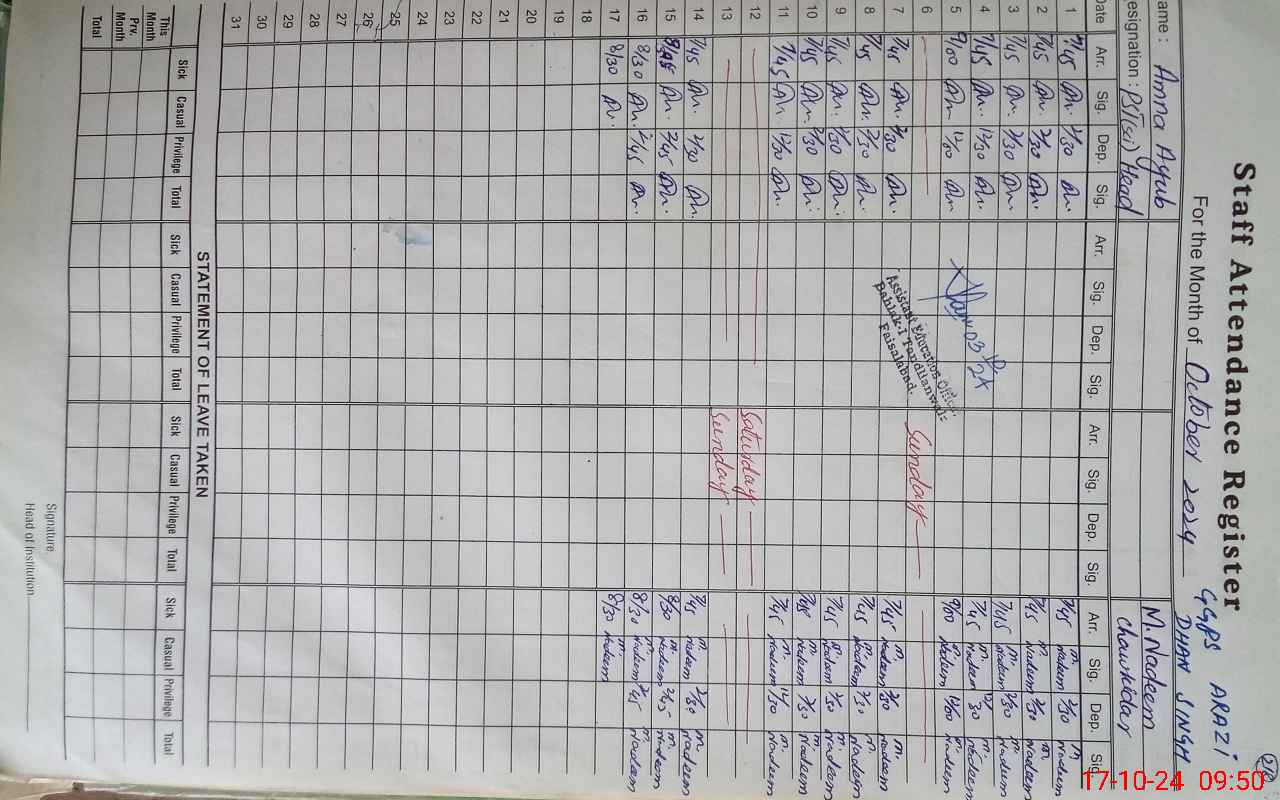 Staff Attendance Register
For the Month of October 2024
GGPS ARAZI
DHAN SINGH
Name : Amna Ayub
Designation : PST(sci) Head
M. Nadeem
chowkidar
Date Arr. Sig. Dep. Sig. Arr. Sig. Dep. Sig. Arr. Sig. Dep. Sig. Arr. Sig. Dep. Sig.
1 7/45 2/30 7/45 M. Nadeem 2/30 M. Nadeem
2 7/45 2/30 7/45 M. Nadeem 2/30 M. Nadeem
3 7/45 2/30 7/45 M. Nadeem 2/30 M. Nadeem
4 7/45 12/30 7/45 M. Nadeem 12/30 M. Nadeem
5 9/00 12/00 9/00 M. Nadeem 12/00 M. Nadeem
6 Sunday
7 7/45 2/30 7/45 M. Nadeem 2/30 M. Nadeem
8 7/45 2/30 7/45 M. Nadeem 2/30 M. Nadeem
9 7/45 2/30 7/45 M. Nadeem 2/30 M. Nadeem
10 7/45 2/30 7/45 M. Nadeem 2/30 M. Nadeem
11 7/45 12/30 7/45 M. Nadeem 12/30 M. Nadeem
12 Saturday
13 Sunday
14 7/45 2/30 7/45 M. Nadeem 2/30 M. Nadeem
15 2/45 8/30 M. Nadeem 2/45 M. Nadeem
16 8/30 2/45 8/30 M. Nadeem 2/45 M. Nadeem
17 8/30 8/30 M. Nadeem
18
19
20
21
22
23
24
25
26
27
28
29
30
31
03 10 24
Assistant Education Officer
Tandlianwala
Faisalabad.
STATEMENT OF LEAVE TAKEN
Sick Casual Privilege Total Sick Casual Privilege Total Sick Casual Privilege Total Sick Casual Privilege Total
This Month
Prv. Month
Total
Signature
Head of Institution
17-10-24 09:50